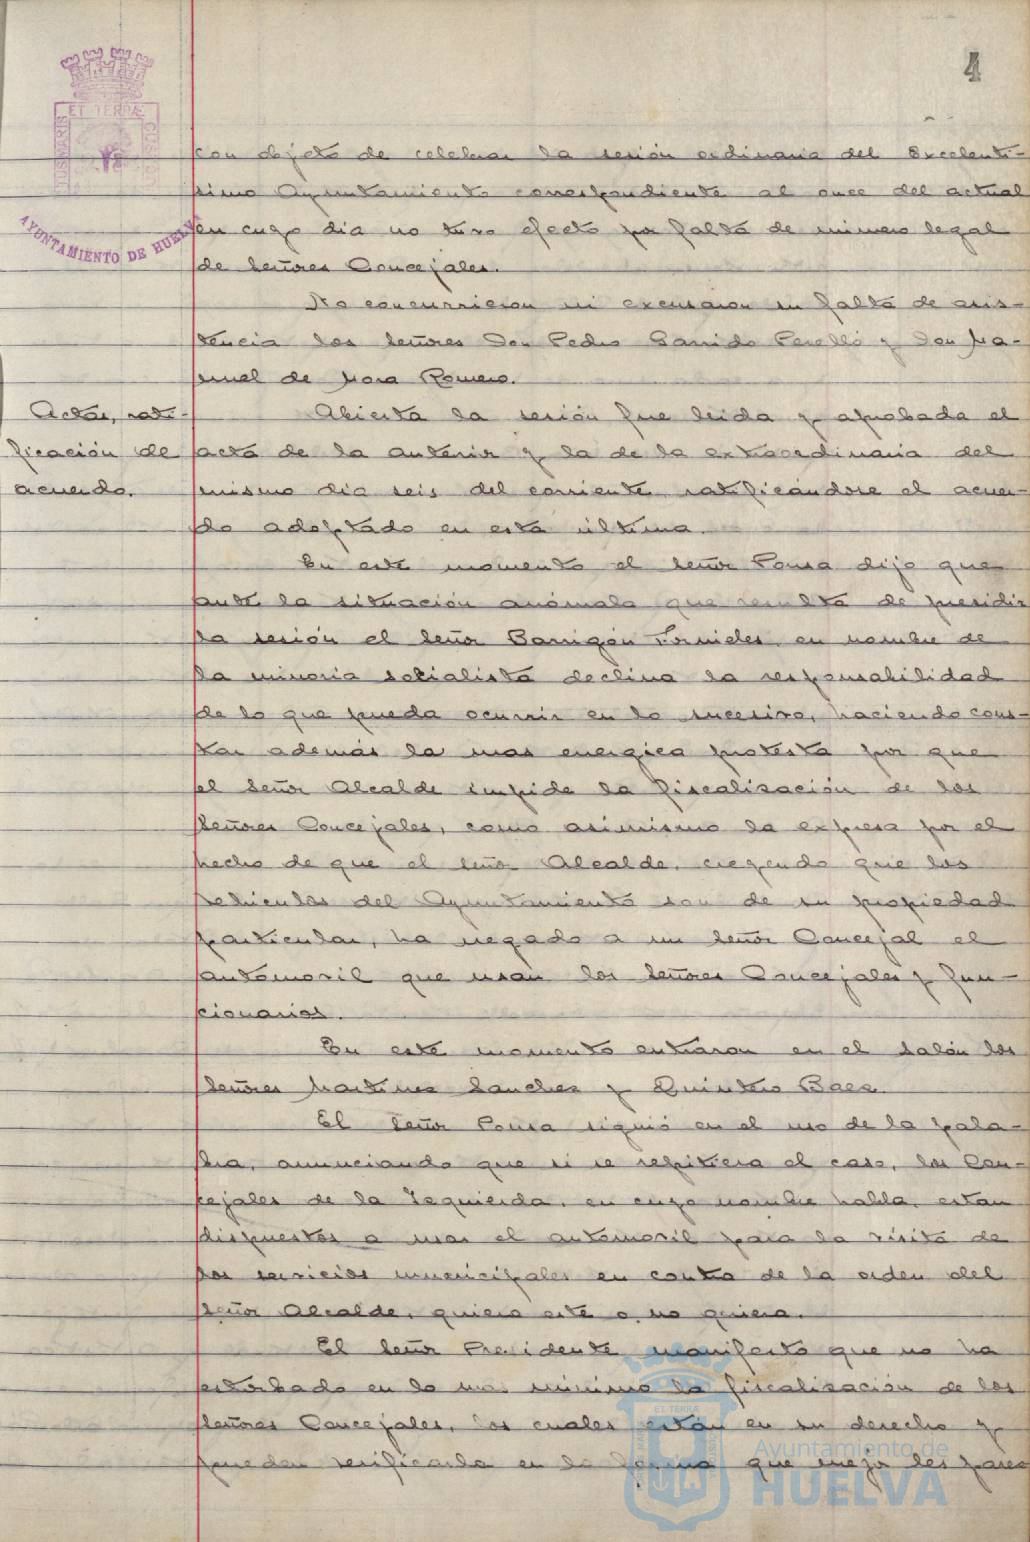 4
ET TERRÆ
AYUNTAMIENTO DE HUELVA
con objeto de celebrar la sesión ordinaria del Excelentí-
simo Ayuntamiento correspondiente al once del actual
en cuyo dia no tuvo efecto por falta de número legal
de Señores Concejales.
No concurrieron ni excusaron su falta de asis-
tencia los Señores Don Pedro Garrido Perelló y Don Ma-
nuel de Mora Romero.
Actas, rati-
ficación de
acuerdo.
Abierta la sesión fue leida y aprobada el
acta de la anterior y la de la extraordinaria del
mismo dia seis del corriente, ratificándose el acuer-
do adoptado en esta última.
En este momento el Señor Ponsa dijo que
ante la situación anómala que resulta de presidir
la sesión el Señor Barrigón Fornieles, en nombre de
la minoria socialista declina la responsabilidad
de lo que pueda ocurrir en lo sucesivo, haciendo cons-
tar además la mas energica protesta por que
el Señor Alcalde impide la fiscalización de los
Señores Concejales, como asimismo la expresa por el
hecho de que el Señor Alcalde, creyendo que los
vehiculos del Ayuntamiento son de su propiedad
particular, ha negado a un Señor Concejal el
automovil que usan los Señores Concejales y fun-
cionarios.
En este momento entraron en el salón los
Señores Martinez Sanchez y Quintero Baez.
El Señor Ponsa siguió en el uso de la pala-
bra, anunciando que si se repitiera el caso, los Con-
cejales de la Izquierda, en cuyo nombre habla, estan
dispuestos a usar el automovil para la visita de
los servicios municipales en contra de la orden del
Señor Alcalde, quiera este o no quiera.
El Señor Presidente manifesto que no ha
estorbado en lo mas minimo la fiscalización de los
Señores Concejales, los cuales están en su derecho y
pueden verificarla en la forma que mejor les pares
Ayuntamiento de
HUELVA